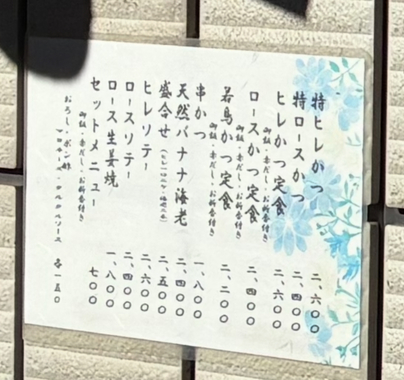 特ヒレかつ 二、六〇〇
特ロースかつ 二、四〇〇
ヒレかつ定食 二、六〇〇
御飯・赤だし・お新香付き
ロースかつ定食 二、四〇〇
御飯・赤だし・お新香付き
若鳥かつ定食 二、二〇〇
御飯・赤だし・お新香付き
串かつ 一、八〇〇
天然バナナ海老 二、四〇〇
盛合せ 二、五〇〇
ヒレソテー 二、六〇〇
ロースソテー 二、四〇〇
ロース生姜焼 一、八〇〇
セットメニュー 七〇〇
御飯・赤だし・お新香付き
おろし・ポン酢
タルタルソース 各一五〇